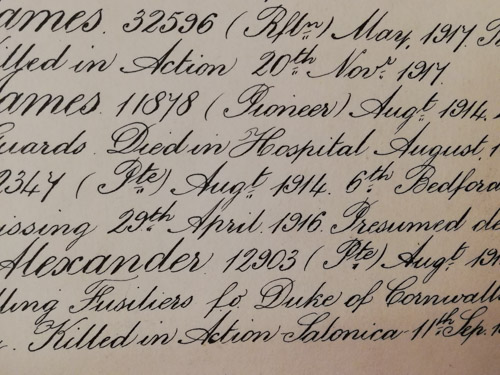 ames. 32596 (Rfln) May, 1917.
illed in Action 20th Novr. 1917.
ames. 11878 (Pioneer) Augt. 1914.
uards. Died in Hospital August, 1
2347 (Pte) Augt. 1914. 6th Bedford
issing 29th April. 1916. Presumed de
Alexander. 12903 (Pte) Augt. 191
ling Fusiliers fo Duke of Cornwall
Killed in Action Salonica 11th Sep. 1